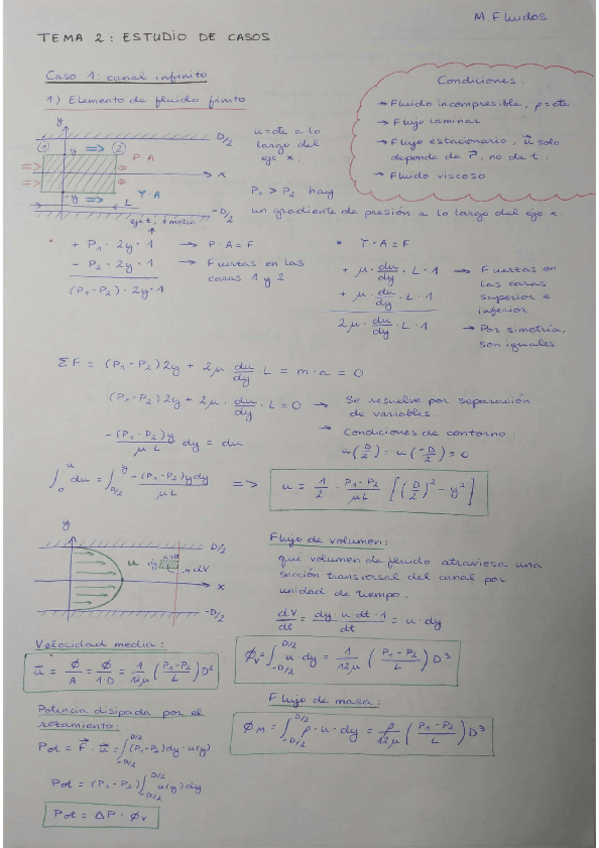 M. Fluidos
TEMA 2: ESTUDIO DE CASOS
Caso 1: canal infinito
1) Elemento de fluido finito
Condiciones:
→ Fluido incompresible, ρ=cte
→ Flujo laminar
→ Flujo estacionario, u⃗ solo
depende de r⃗, no de t.
→ Fluido viscoso
y
D/2
① y => ②
P·A
x
-y =>
τ·A
L
-D/2
eje z, 1 metro
u=cte a lo
largo del
eje x.
P₁ > P₂ hay
un gradiente de presión a lo largo del eje x
+ P₁ · 2y · 1 → P·A = F
- P₂ · 2y · 1 → Fuerzas en las
caras 1 y 2
(P₁-P₂) · 2y · 1
• τ·A = F
+ μ · du/dy · L · 1 → Fuerzas en
las caras
superior e
inferior
+ μ · du/dy · L · 1
2μ · du/dy · L · 1 → Por simetría,
son iguales
ΣF = (P₁-P₂)2y + 2μ du/dy · L = m·a = 0
(P₁-P₂)2y + 2μ · du/dy · L = 0 → Se resuelve por separación
de variables.
→ Condiciones de contorno
-(P₁-P₂)y/μL dy = du
u(D/2) = u(-D/2) = 0
∫₀ᵘ du = ∫_{D/2}^{y} -(P₁-P₂)ydy/μL => u = 1/2 · P₁-P₂/μL [(D/2)² - y²]
y
D/2
u
dy
dV
x
-D/2
Flujo de volumen:
qué volumen de fluido atraviesa una
sección transversal del canal por
unidad de tiempo.
dV/dt = dy · u·dt·1/dt = u·dy
Velocidad media:
ū = ϕ/A = ϕ/1·D = 1/12μ (P₁-P₂/L) D²
ϕᵥ = ∫_{-D/2}^{D/2} u·dy = 1/12μ (P₁-P₂/L) D³
Flujo de masa:
ϕ_M = ∫_{-D/2}^{D/2} ρ·u·dy = ρ/12μ (P₁-P₂/L) D³
Potencia disipada por el
rozamiento:
Pot = F⃗ · u⃗ = ∫_{-D/2}^{D/2} (P₁-P₂)dy·u(y)
Pot = (P₁-P₂) ∫_{-D/2}^{D/2} u(y)dy
Pot = ΔP · ϕᵥ